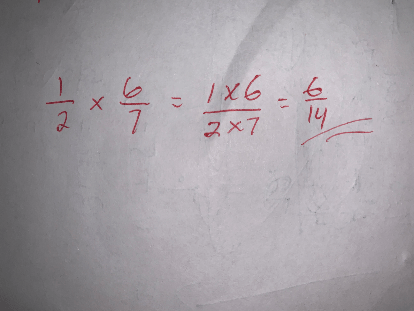 1/2 × 6/7 = 1×6/2×7 = 6/14